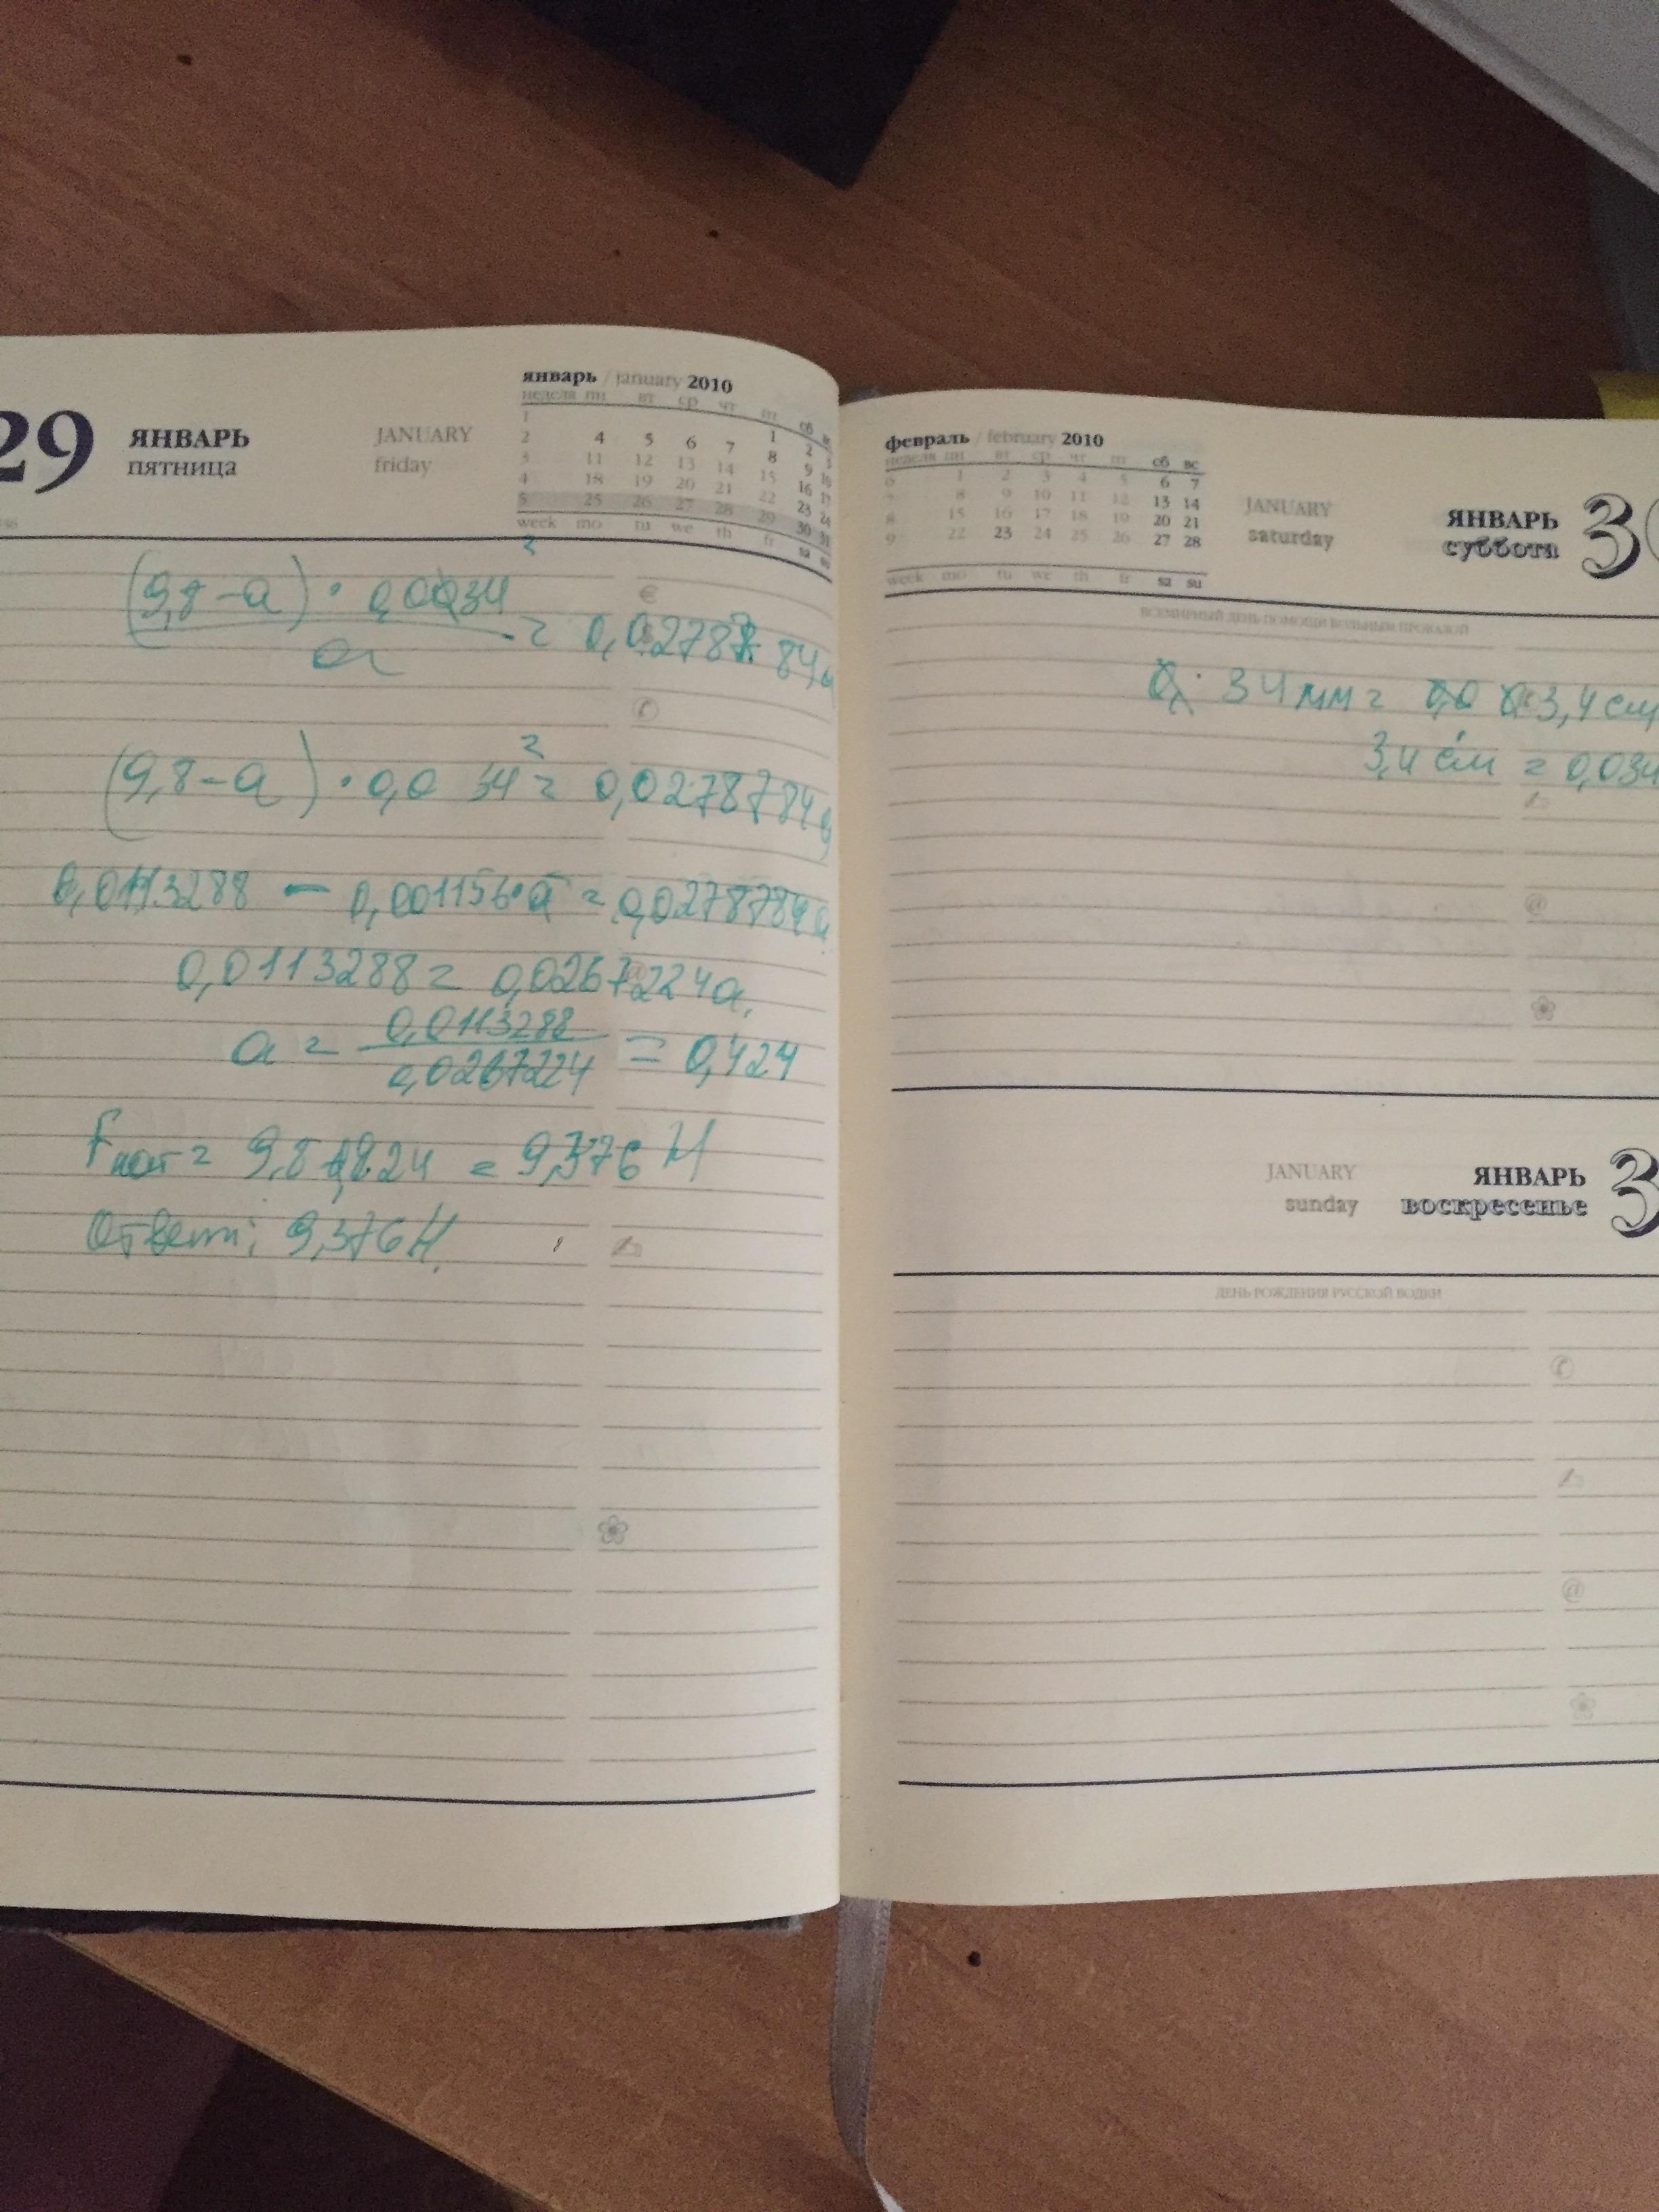 29 ЯНВАРЬ JANUARY
пятница friday
январь / january 2010
неделя пн вт ср чт пт сб вс
1 1 2 3
2 4 5 6 7 8 9 10
3 11 12 13 14 15 16 17
4 18 19 20 21 22 23 24
5 25 26 27 28 29 30 31
week mo tu we th fr sa su
(9,8-a) · 0,034²
a = 0,0278784
(9,8-a) · 0,034² = 0,0278784a
0,0113288 - 0,001156·a = 0,0278784a
0,0113288 = 0,0267224a
a = 0,0113288 / 0,0267224 = 0,424
Fнат = 9,8-0,424 = 9,376 Н
Ответ: 9,376Н.
февраль / february 2010
неделя пн вт ср чт пт сб вс
6 1 2 3 4 5 6 7
7 8 9 10 11 12 13 14
8 15 16 17 18 19 20 21
9 22 23 24 25 26 27 28
week mo tu we th fr sa su
JANUARY ЯНВАРЬ 3
saturday суббота
ВСЕМИРНЫЙ ДЕНЬ ПОМОЩИ БОЛЬНЫМ ПРОКАЗОЙ
34 мм = 3,4 см
3,4 см = 0,034
JANUARY ЯНВАРЬ 3
sunday воскресенье
ДЕНЬ РОЖДЕНИЯ РУССКОЙ ВОДКИ